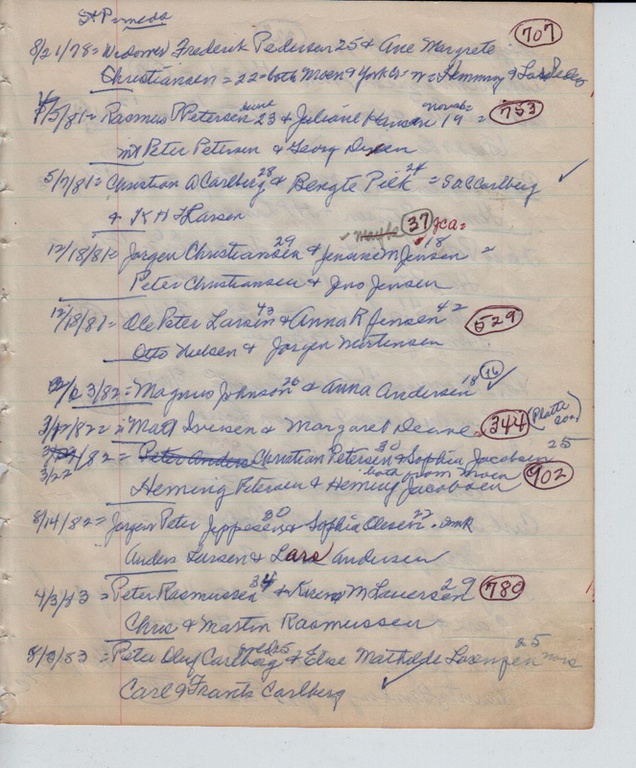 St P
707
8/21/78 = Widower Frederik Pedersen 25 & Ane Margrete
Christiansen = 22 = both Moen & York = w = Hemming & Lars
7/5/81 = Rasmus P Petersen 23 & Juliane Hansen 19 = 753
Peter Petersen & Georg
5/7/81 = Christian A Carlberg 28 & Bengte Piek 24 = S A C Carlberg ✓
& K H F Larsen
maybe 37 Jca =
12/18/81 = Jorgen Christiansen 29 & M Jensen 18 =
Peter Christiansen & Jens Jensen
12/18/81 = Ole Peter Larsen 43 & Anna R Jensen 42 529
Otto Nielsen & Jorgen Mortensen
2/23/82 = Magnus Johnson 26 & Anna Andersen 18 16 ✓
3/12/82 = Matt Iversen & Margaret Deane 344 (Platte Co)
3/22/82 = Peter Anders Christian Petersen 30 & Sophia Jacobsen 25
both from Moen
Heming Petersen & Heming Jacobsen 902
8/14/82 = Jorgen Peter Jeppesen 30 & Sophia Olesen 22 = Dmk
Anders Larsen & Lars Andersen
4/3/83 = Peter Rasmussen 34 & Karen M Laursen 29 780
Chris & Martin Rasmussen
5/8/83 = Peter Oluf Carlberg & Else Mathilde Lorenzen 25
Carl & Frants Carlberg ✓